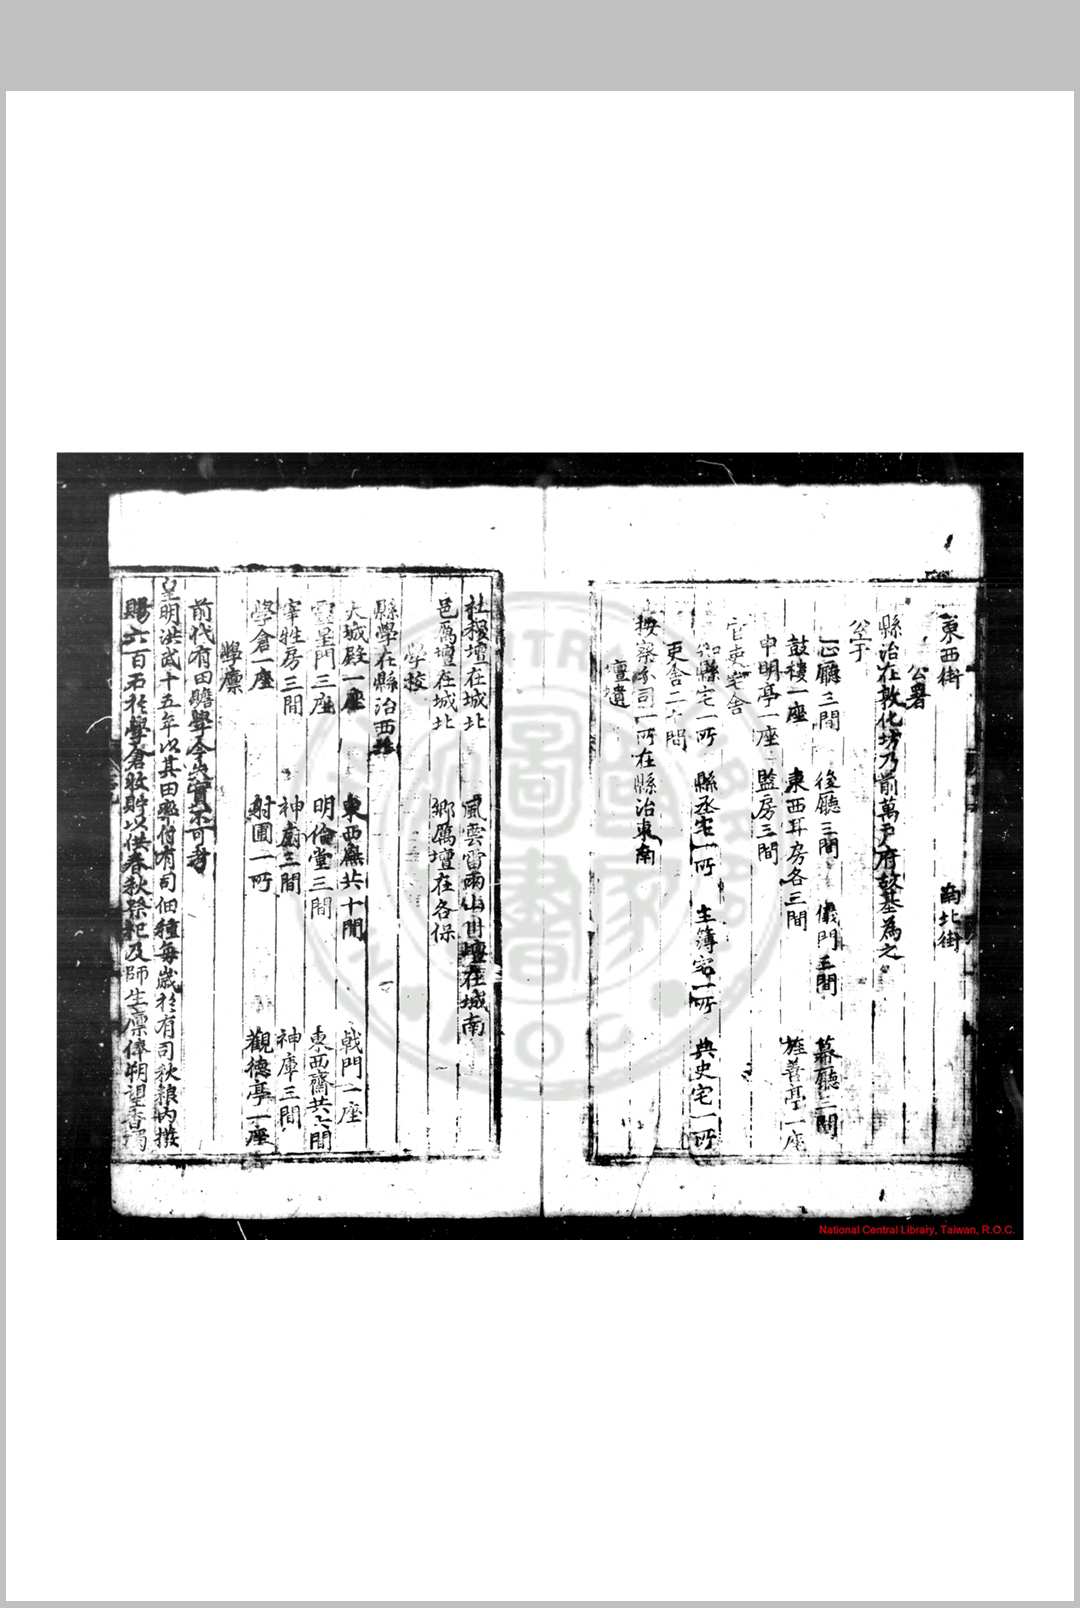 東西街 南北街
公署
縣治在敦化坊乃前萬戶府故基為之
公宇
正廳三間 後廳三間 儀門三間 幕廳二間
鼓樓一座 東西耳房各三間 旌善亭一座
申明亭一座 監房三間
官吏宅舍
知縣宅一所 縣丞宅一所 主簿宅一所 典史宅一所
吏舍二十間
按察分司一所在縣治東南
壇壝
社稷壇在城北 風雲雷雨山川壇在城南
邑厲壇在城北 鄉厲壇在各保
學校
縣學在縣治西
大城殿一座 東西廡共十間 戟門一座
靈星門三座 明倫堂三間 東西齋共六間
宰牲房三間 神廚三間 神庫三間
學倉一座 射圃一所 觀德亭一座
學廩
前代有田贍學今失實不可考
皇明洪武十五年以其田率付有司佃種每歲於有司秋粮內撥
賜六百石於學倉收貯以供春秋祭祀及師生廩俸朔望香燭
National Central Library, Taiwan, R.O.C.